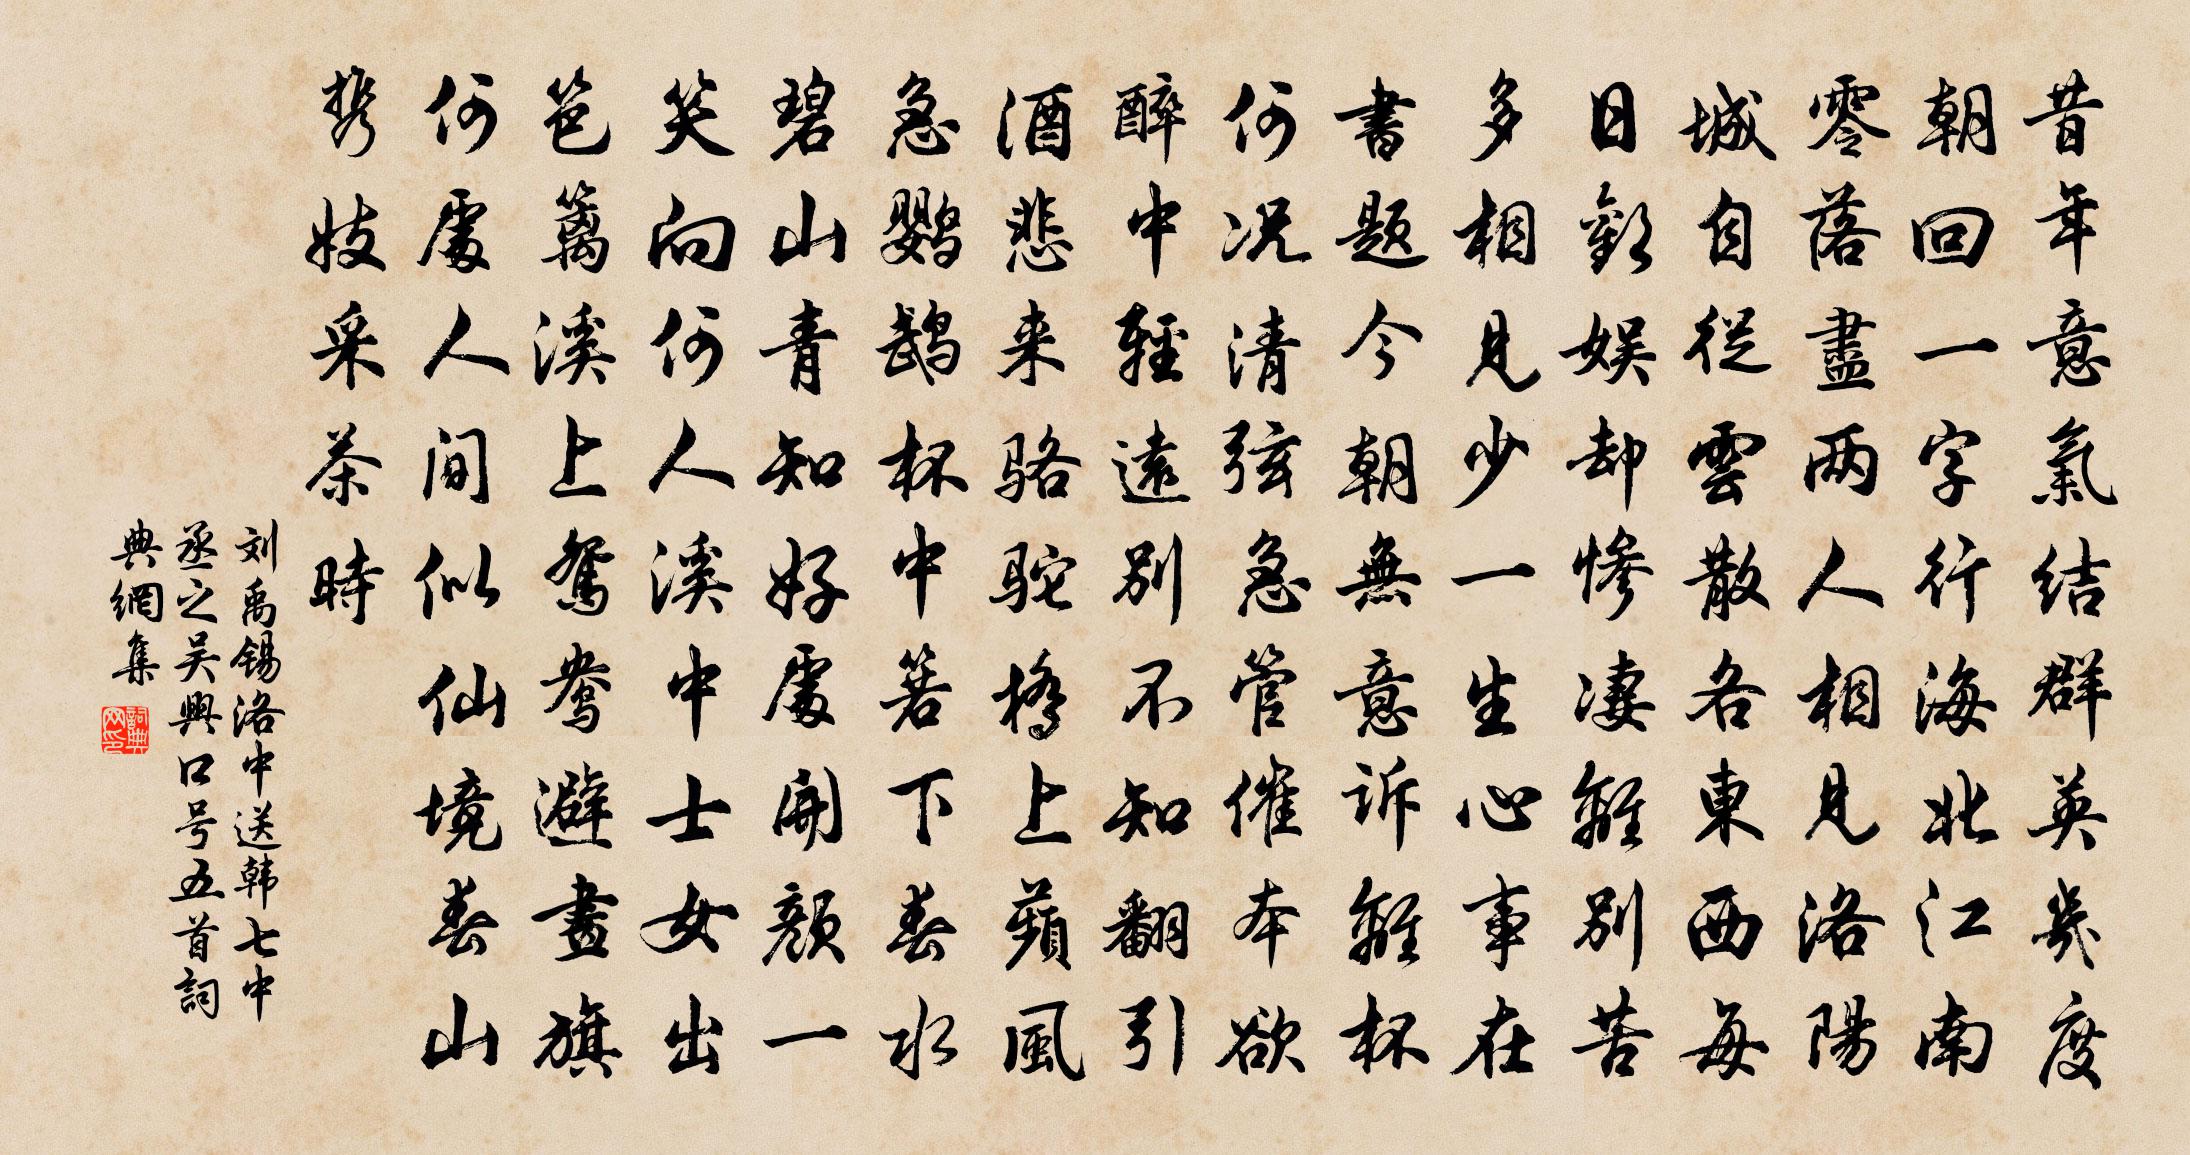 昔年意氣結群英幾度
朝回一字行海北江南
零落盡两人相見洛陽
城自從雲散各東西每
日歡娱却慘凄離别苦
多相見少一生心事在
書题今朝無意訴離杯
何况清弦急管催本欲
醉中輕遠别不知翻引
酒悲来骆驼橋上蘋風
急鹦鹉杯中箬下春水
碧山青知好處開顔一
笑向何人溪中士女出
笆籬溪上鴛鴦避畫旗
何處人間似仙境春山
携妓采茶時
刘禹锡洛中送韩七中
丞之吴興口号五首詞
典網集
詞典
网印